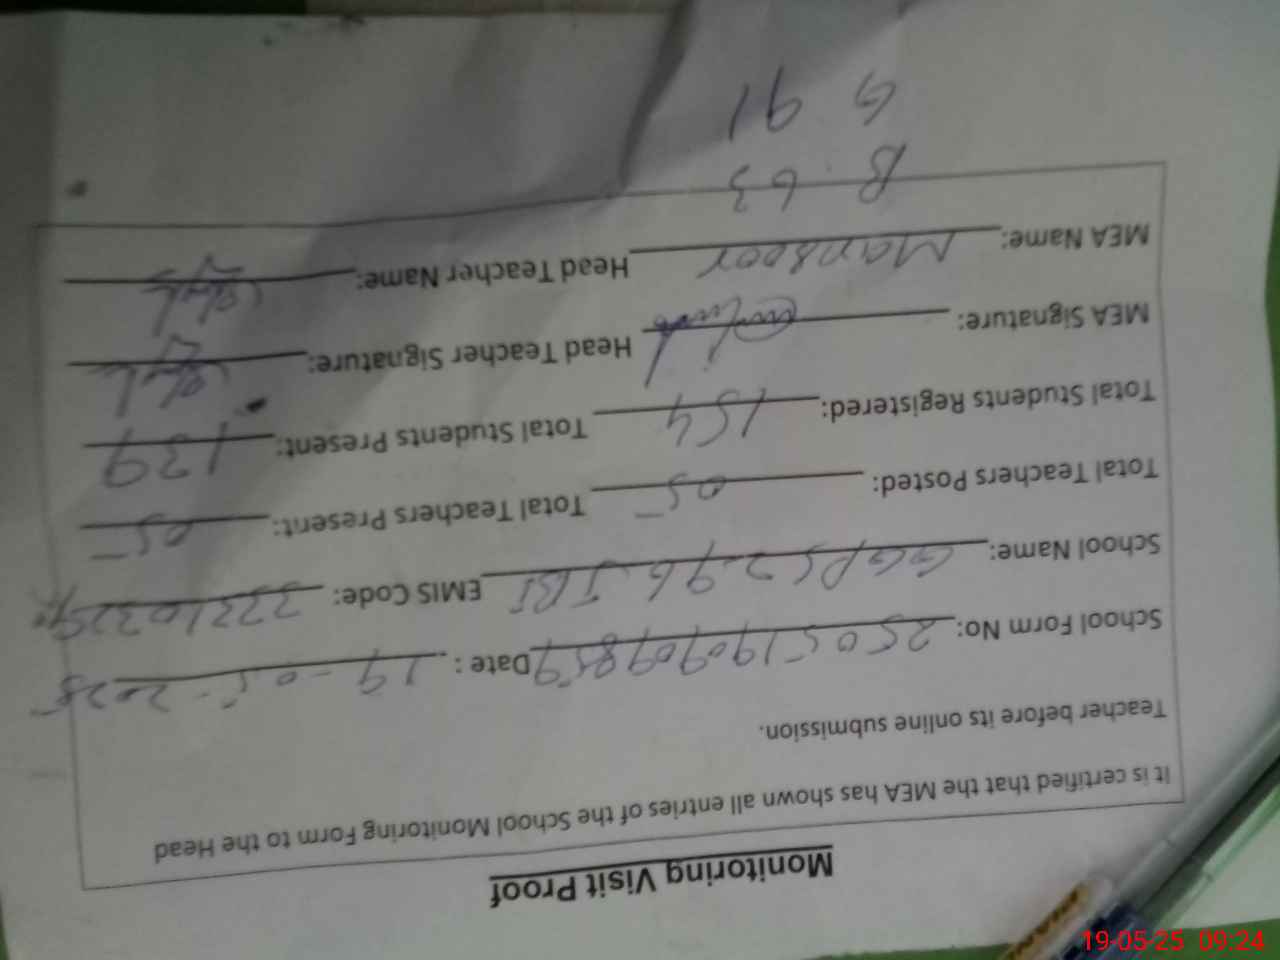 Monitoring Visit Proof
It is certified that the MEA has shown all entries of the School Monitoring Form to the Head
Teacher before its online submission.
School Form No: 250519090989 Date : 19-05-2025
School Name: GGPS 296 JBI EMIS Code:
Total Teachers Posted: 05 Total Teachers Present: 05
Total Students Registered: 154 Total Students Present: 139
MEA Signature: Head Teacher Signature:
MEA Name: Mansoor Head Teacher Name:
B. 63
G 91
19-05-25 09:24